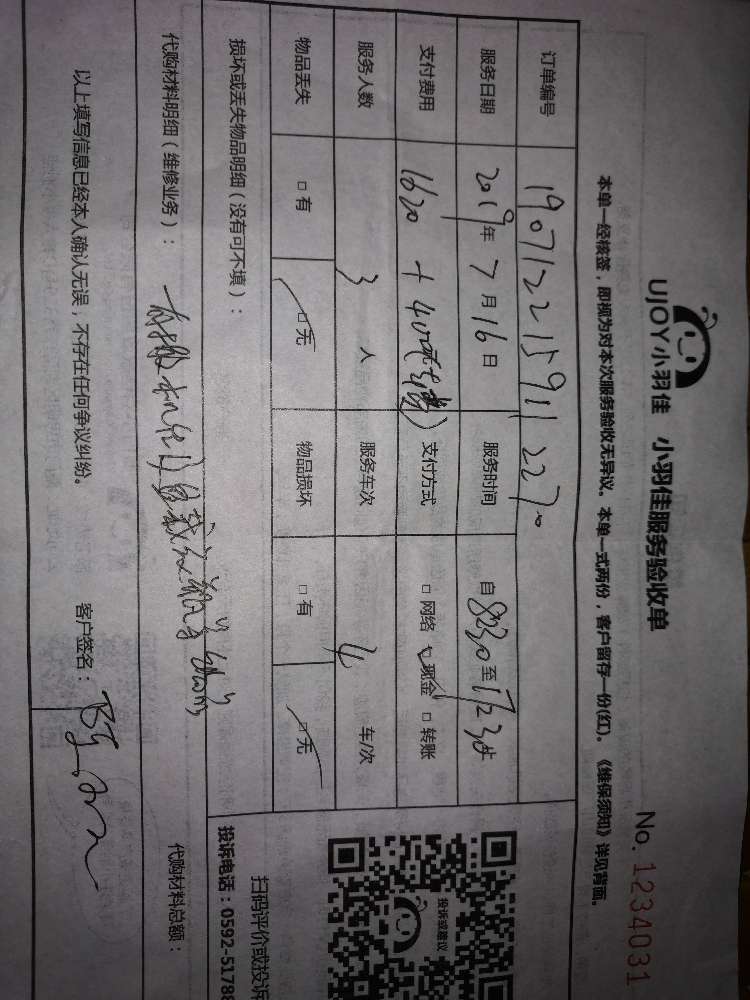 UJOY小羽佳 小羽佳服务验收单
No. 1234031
本单一经核签，即视为对本次服务验收无异议。本单一式两份，客户留存一份(红)。《维保须知》详见背面。
订单编号 190712215911227
服务日期 2019年7月16日 服务时间 自 8:30 至 17:30
支付费用 1620 + 400 支付方式 □网络 ☑现金 □转账
服务人数 3 人 服务车次 4 车/次
物品丢失 □有 ☑无 物品损坏 □有 ☑无
损坏或丢失物品明细（没有可不填）：
代购材料明细（维修业务）： 代购材料总额：
以上填写信息已经本人确认无误，不存在任何争议纠纷。 客户签名：
投诉或建议
扫码评价或投诉
投诉电话：0592-51788